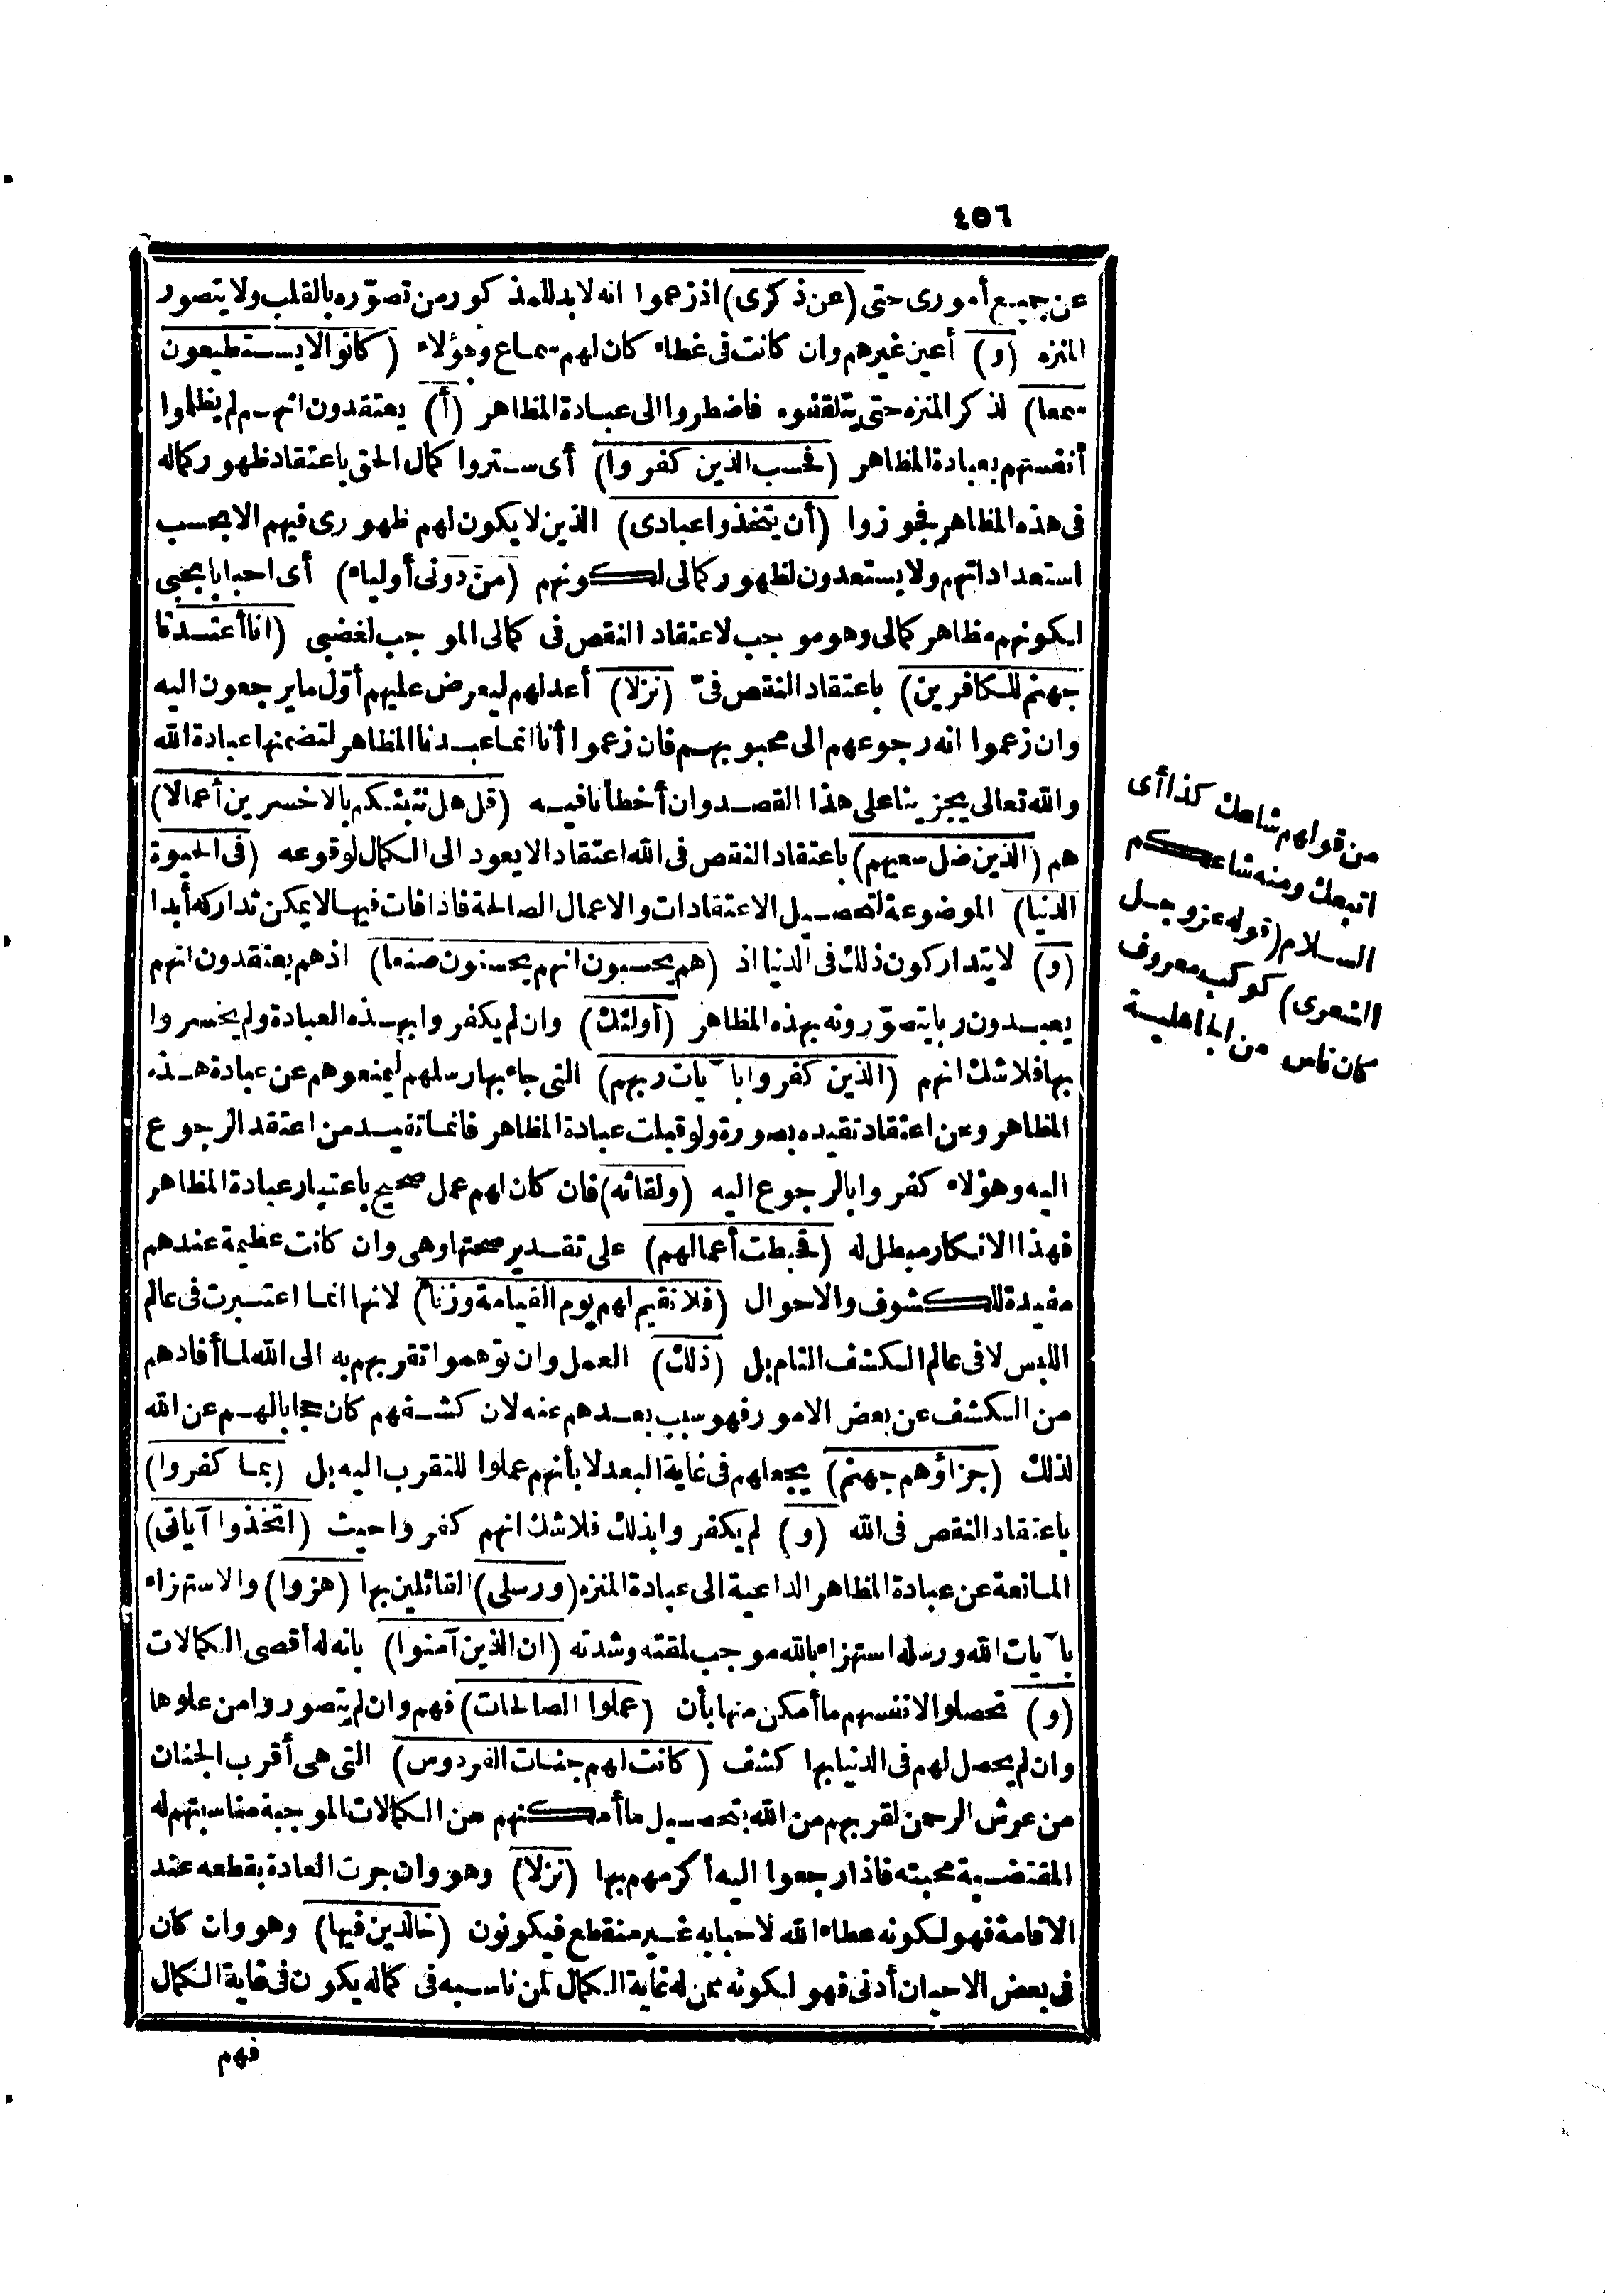 ٤٥٦
عن جميع أمورى حتى (عن ذكرى) اذ زعموا انه لا بد للمذكور من تصوّره بالقلب ولا يتصور
المنزه (و) أعين غيرهم وان كانت فى غطاء كان لهم سماع وهؤلاء (كانوا لا يستطيعون
سمعا) لذكر المنزه حتى يتلقنوه فاضطروا الى عبادة المظاهر (أ) يعتقدون انهم لم يظلموا
أنفسهم بعبادة المظاهر (فحسب الذين كفروا) أى ستروا كمال الحق باعتقاد ظهور كماله
فى هذه المظاهر فجوزوا (أن يتخذوا عبادى) الذين لا يكون لهم ظهورى فيهم الا بحسب
استعداداتهم ولا يستعدون لظهور كمالى لكونهم (من دونى أولياء) أى احبابا بحبى
لكونهم مظاهر كمالى وهو موجب لاعتقاد النقص فى كمالى الموجب لغضبى (انا أعتدنا
جهنم للكافرين) باعتقاد النقص فىّ (نزلا) أعد لهم ليعرض عليهم أوّل ما يرجعون اليه
وان زعموا انه رجوعهم الى محبوبهم فان زعموا أنا انما عبدنا المظاهر لتضمنها عبادة الله
والله تعالى يجزينا على هذا القصد وان أخطأنا فيه (قل هل ننبئكم بالاخسرين أعمالا)
هم (الذين ضل سعيهم) باعتقاد النقص فى الله اعتقادا لا يعود الى الكمال لوقوعه (فى الحيوة
الدنيا) الموضوعة لتحصيل الاعتقادات والاعمال الصالحة فاذا فات فيها لا يمكن تداركه أبدا
(و) لا يتداركون ذلك فى الدنيا اذ (هم يحسبون انهم يحسنون صنعا) اذ هم يعتقدون انهم
يعبدون ربا يتصوّرونه بهذه المظاهر (أولئك) وان لم يكفروا بهذه العبادة ولم يخسروا
بها فلا شك انهم (الذين كفروا بآيات ربهم) التى جاء بها رسلهم ليمنعوهم عن عبادة هذه
المظاهر وعن اعتقاد تقيده بصورة ولو قبلت عبادة المظاهر فانما تفيد من اعتقد الرجوع
اليه وهؤلاء كفروا بالرجوع اليه (ولقائه) فان كان لهم عمل صحيح باعتبار عبادة المظاهر
فهذا الانكار مبطل له (فحبطت أعمالهم) على تقدير صحتها وهى وان كانت عظيمة عندهم
مفيدة للكشوف والاحوال (فلا نقيم لهم يوم القيامة وزنا) لانها انما اعتبرت فى عالم
اللبس لا فى عالم الكشف التام بل (ذلك) العمل وان توهموا تقربهم به الى الله لما أفادهم
من الكشف عن بعض الامور فهو سبب بعدهم عنه لان كشفهم كان حجابا لهم عن الله
لذلك (جزاؤهم جهنم) يجعلهم فى غاية البعد لا بأنهم عملوا للتقرب اليه بل (بما كفروا)
باعتقاد النقص فى الله (و) لم يكفروا بذلك فلا شك انهم كفروا حيث (اتخذوا آياتى)
المانعة عن عبادة المظاهر الداعية الى عبادة المنزه (ورسلى) القائلين بها (هزوا) والاستهزاء
بآيات الله ورسله استهزاء بالله موجب لمقته وشدته (ان الذين آمنوا) بانه له أقصى الكمالات
(و) تحصلوا لانفسهم ما أمكن منها بأن (عملوا الصالحات) فهم وان لم يتصوروا من علوها
وان لم يحصل لهم فى الدنيا بها كشف (كانت لهم جنات الفردوس) التى هى أقرب الجنان
من عرش الرحمن لقربهم من الله بتحصيل ما أمكنهم من الكمالات الموجبة مناسبتهم له
المقتضية محبته فاذا رجعوا اليه أكرمهم بها (نزلا) وهو وان جرت العادة بقطعه عند
الاقامة فهو لكونه عطاء الله لاحبابه غير منقطع فيكونون (خالدين فيها) وهو وان كان
فى بعض الاحيان أدنى فهو لكونه ممن له غاية الكمال لمن ناسبه فى كماله يكون فى غاية الكمال
فهم
من قولهم شاعك كذا أى
اتبعك ومنه شاعكم
السلام (قوله عز وجل
الشعرى) كوكب معروف
كان ناس من الجاهلية